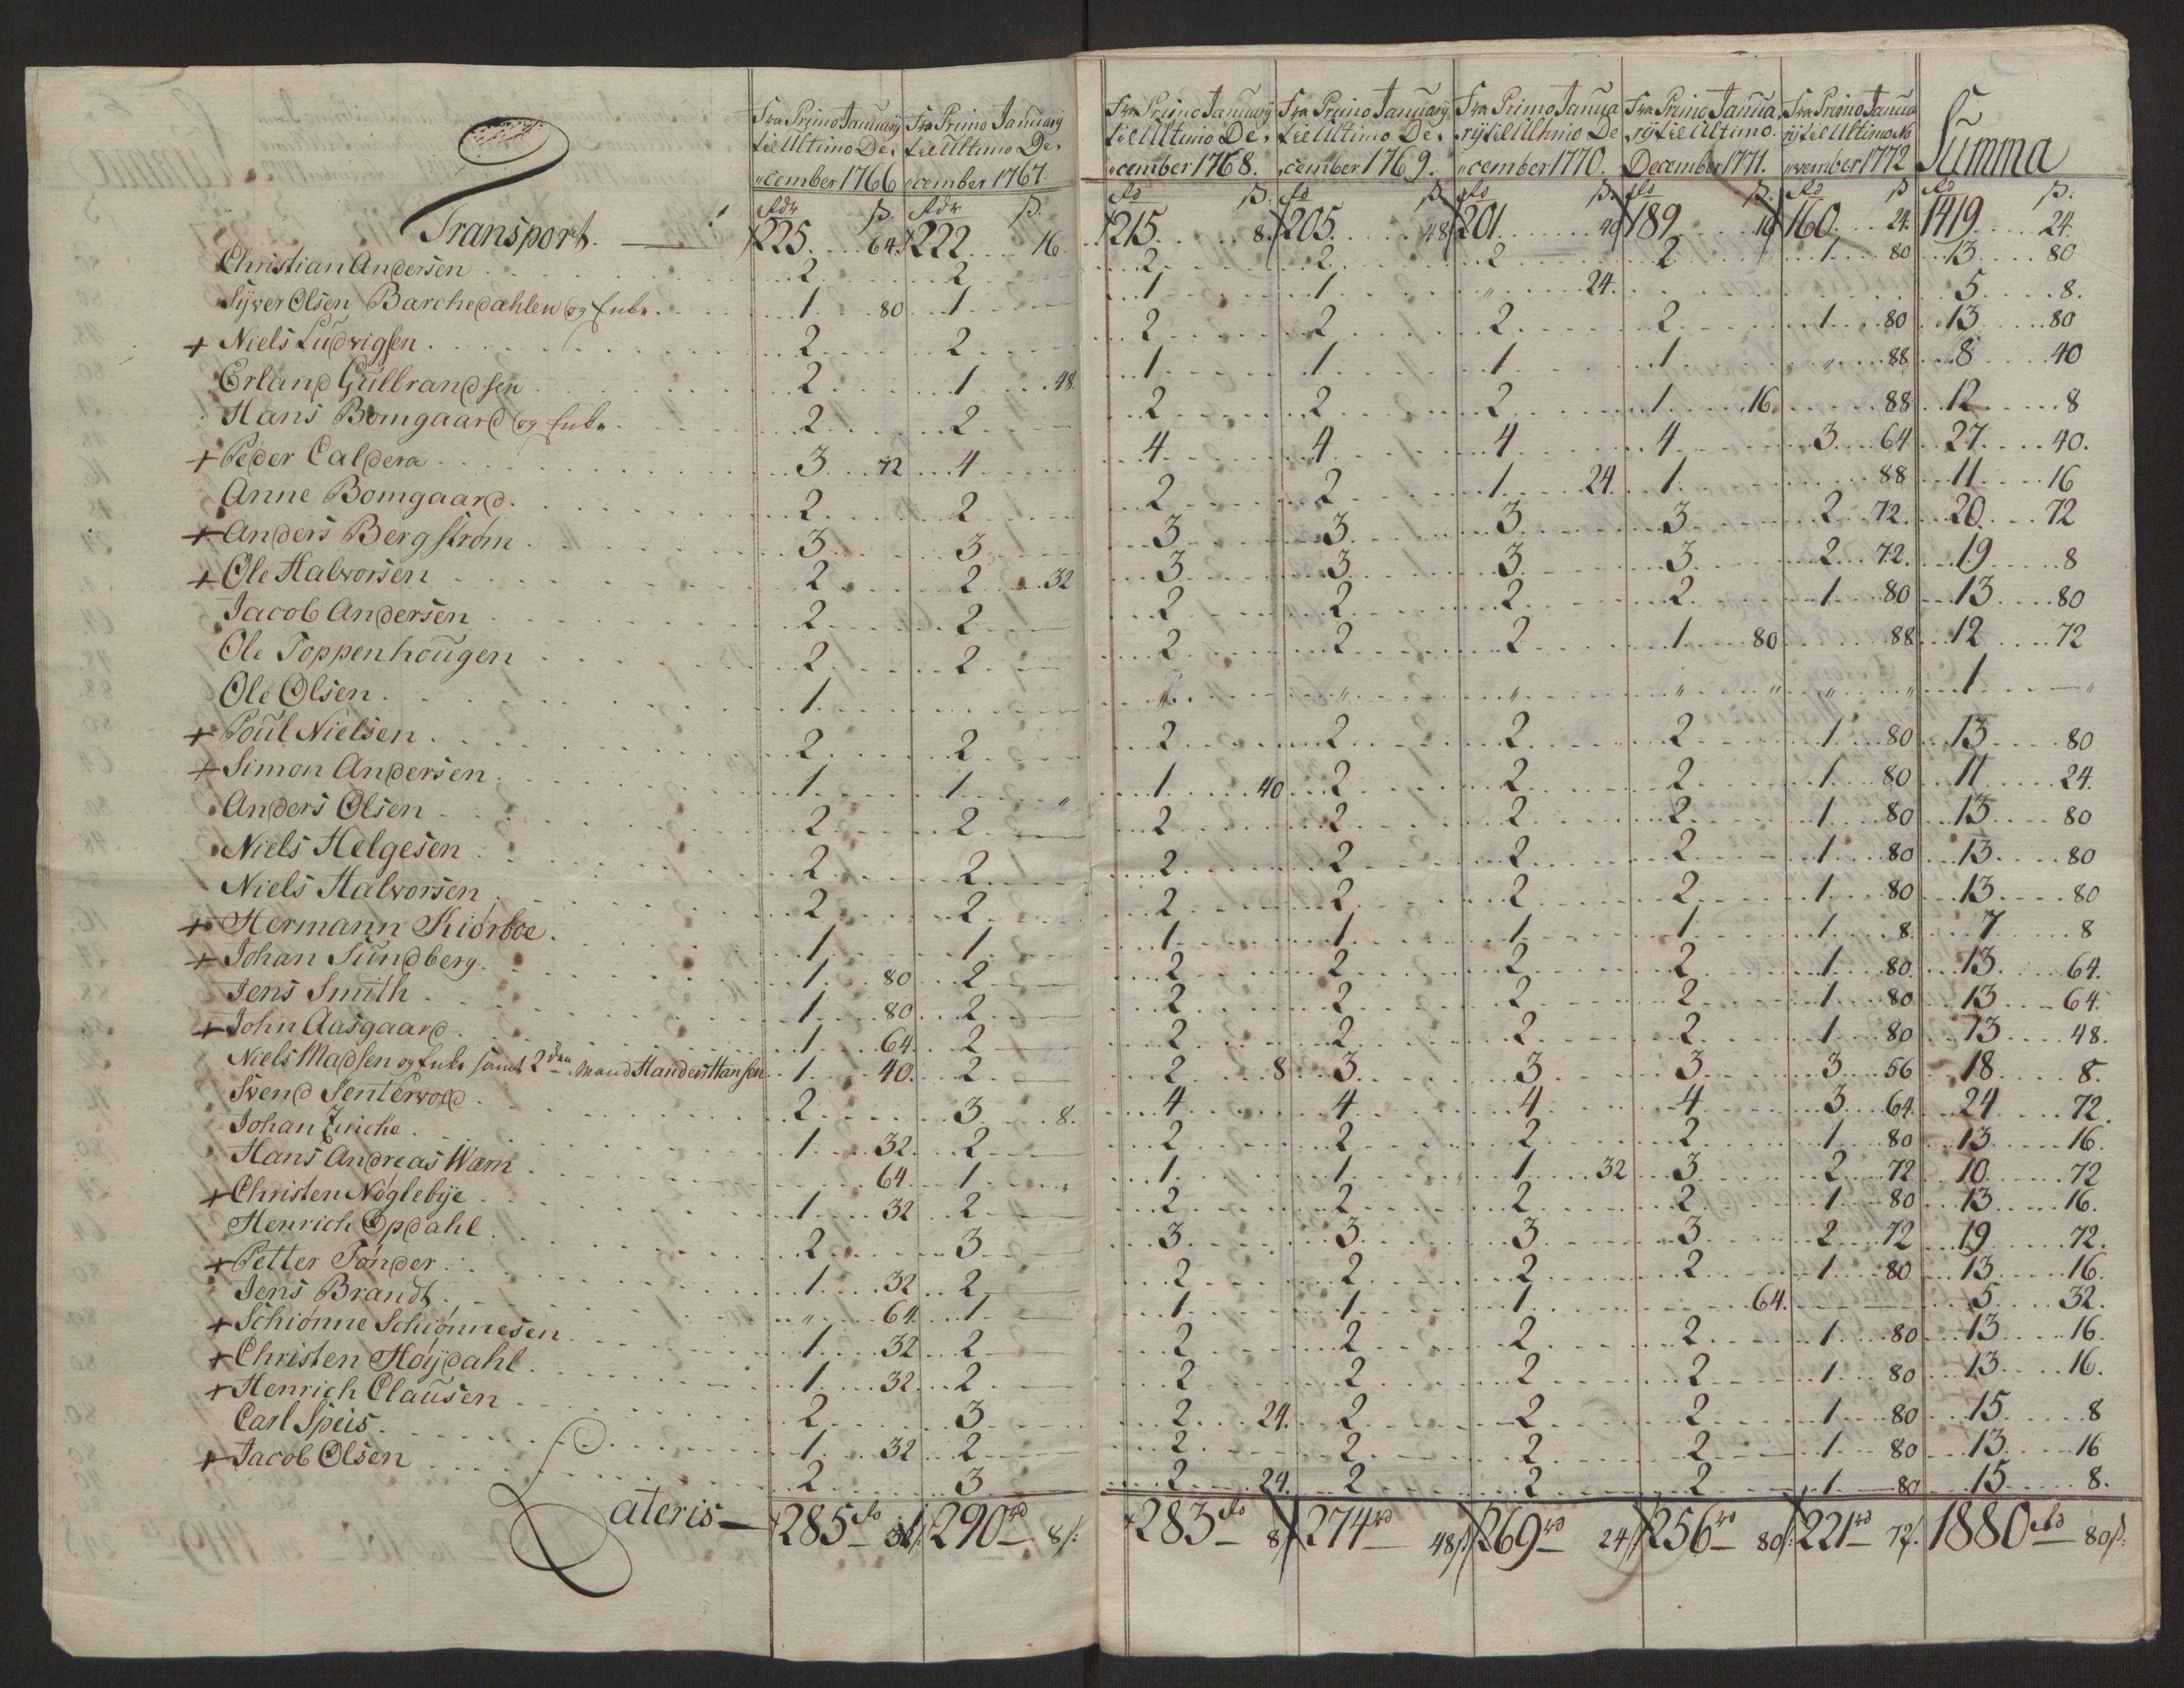 Fra Primo Januarij til Ultimo De„cember 1766 | Fra Primo Januarij til Ultimo De„cember 1767. | Fra Primo Januarij til Ultimo De„cember 1768. | Fra Primo Januarij til Ultimo De„cember 1769. | Fra Primo Januarij til Ultimo De„cember 1770. | Fra Primo Januarij til Ultimo December 1771. | Fra Primo Januarij til Ultimo No„vember 1772 | Summa
Rdr ß. | Rdr ß. | Rd ß. | Rd ß. | Rd ß. | Rd ß. | Rd ß | Rd ß:
Transport. 225. 64. | 222. 16. | 215. 8. | 205. 48 | 201. 40 | 189. 16 | 160. 24. | 1419. 24.
Christian Andersen 2 | 2 | 2 | 2 | 2 | 2 | 1 80 | 13 80
Syver Olsen Barchedahlen og Enke. 1 80 | 1 | 1 | 1 | „ 24. | | | 5 8.
+ Niels Ludvigsen. 2 | 2 | 2 | 2 | 2 | 2 | 1 80 | 13 80
Erland Gulbrandsen 2 | 1 48. | 1 | 1 | 1 | 1 | „ 88 | 8 40
Hans Bomgaard og Enke 2 | 2 | 2 | 2 | 2 | 1 16. | 88 | 12 8
+ Peder Caldera 3 72 | 4 | 4 | 4 | 4 | 4 | 3 64 | 27 40.
Anne Bomgaard. 2 | 2 | 2 | 2 | 1 24. | 1 | 88 | 11 16
+ Anders Bergstrøm 3 | 3 | 3 | 3 | 3 | 3 | 2 72. | 20 72
+ Ole Halvorsen 2 | 2 32 | 3 | 3 | 3 | 3 | 2 72. | 19 8
Jacob Andersen 2 | 2 | 2 | 2 | 2 | 2 | 1 80 | 13 80
Ole Toppenhougen 2 | 2 | 2 | 2 | 2 | 1 80 | 88 | 12 72
Ole Olsen. 1 | | „ | „ | „ | „ „ | „ „ | 1 „
+ Poul Nielsen. 2 | 2 | 2 | 2 | 2 | 2 | 1 80 | 13 80
+ Simon Andersen 1 | 1 „ | 1 40 | 2 | 2 | 2 | 1 80 | 11 24.
Anders Olsen 2 | 2 | 2 | 2 | 2 | 2 | 1 80 | 13 80
Niels Helgesen 2 | 2 | 2 | 2 | 2 | 2 | 1 80 | 13 80
Niels Halvorsen 2 | 2 | 2 | 2 | 2 | 2 | 1 80 | 13 80
+ Hermann Kiørboe. 1 | 1 | 1 | 1 | 1 | 1 | 1 8. | 7 8
+ Johan Sundberg. 1 80 | 2 | 2 | 2 | 2 | 2 | 1 80 | 13 64.
Jens Smith 1 80 | 2 | 2 | 2 | 2 | 2 | 1 80 | 13 64.
+ John Aasgaard. 1 64. | 2 | 2 | 2 | 2 | 2 | 1 80 | 13 48.
Niels Madsen og Enke samt 2den Mand Handers Hansen 1 40. | 2 | 2 8 | 3 | 3 | 3 | 3 56 | 18 8.
Svend Senterwold 2 | 3 8. | 4 | 4 | 4 | 4 | 3 64. | 24 72.
Johan Zuiche. 1 32. | 2 | 2 | 2 | 2 | 2 | 1 80 | 13 16.
Hans Andreas Wærn 64. | 1 „ | 1 | 1 | 1 32 | 3 | 2 72 | 10 72
+ Christen Nøglebye 1 32 | 2 | 2 | 2 | 2 | 2 | 1 80 | 13 16.
Henrich Opdahl 2 | 3 | 3 | 3 | 3 | 3 | 2 72 | 19 72.
+ Petter Tønder. 1 32 | 2 | 2 | 2 | 2 | 2 | 1 80 | 13 16.
Jens Brandt. „ 64. | 1 | 1 | 1 | 1 | 64. | | 5 32.
+ Schiønne Schiønnesen 1 32 | 2 | 2 | 2 | 2 | 2 | 1 80 | 13 16.
+ Christen Høijdahl 1 32. | 2 | 2 | 2 | 2 | 2 | 1 80 | 13 16.
+ Henrich Clausen 2 | 3 | 2 24. | 2 | 2 | 2 | 1 80 | 15 8
Carl Speis. 1 32 | 2 | 2 | 2 | 2 | 2 | 1 80 | 13 16
+ Jacob Olsen 2 | 3 | 2 24. | 2 | 2 | 2 | 1 80 | 15 8.
Lateris 285 Rd | 290 rd 8ß: | 283 Rd 8ß | 274 rd 48ß | 269 rd 24ß | 256 rd 80ß: | 221 rd 72. | 1880 Rd 80ß: